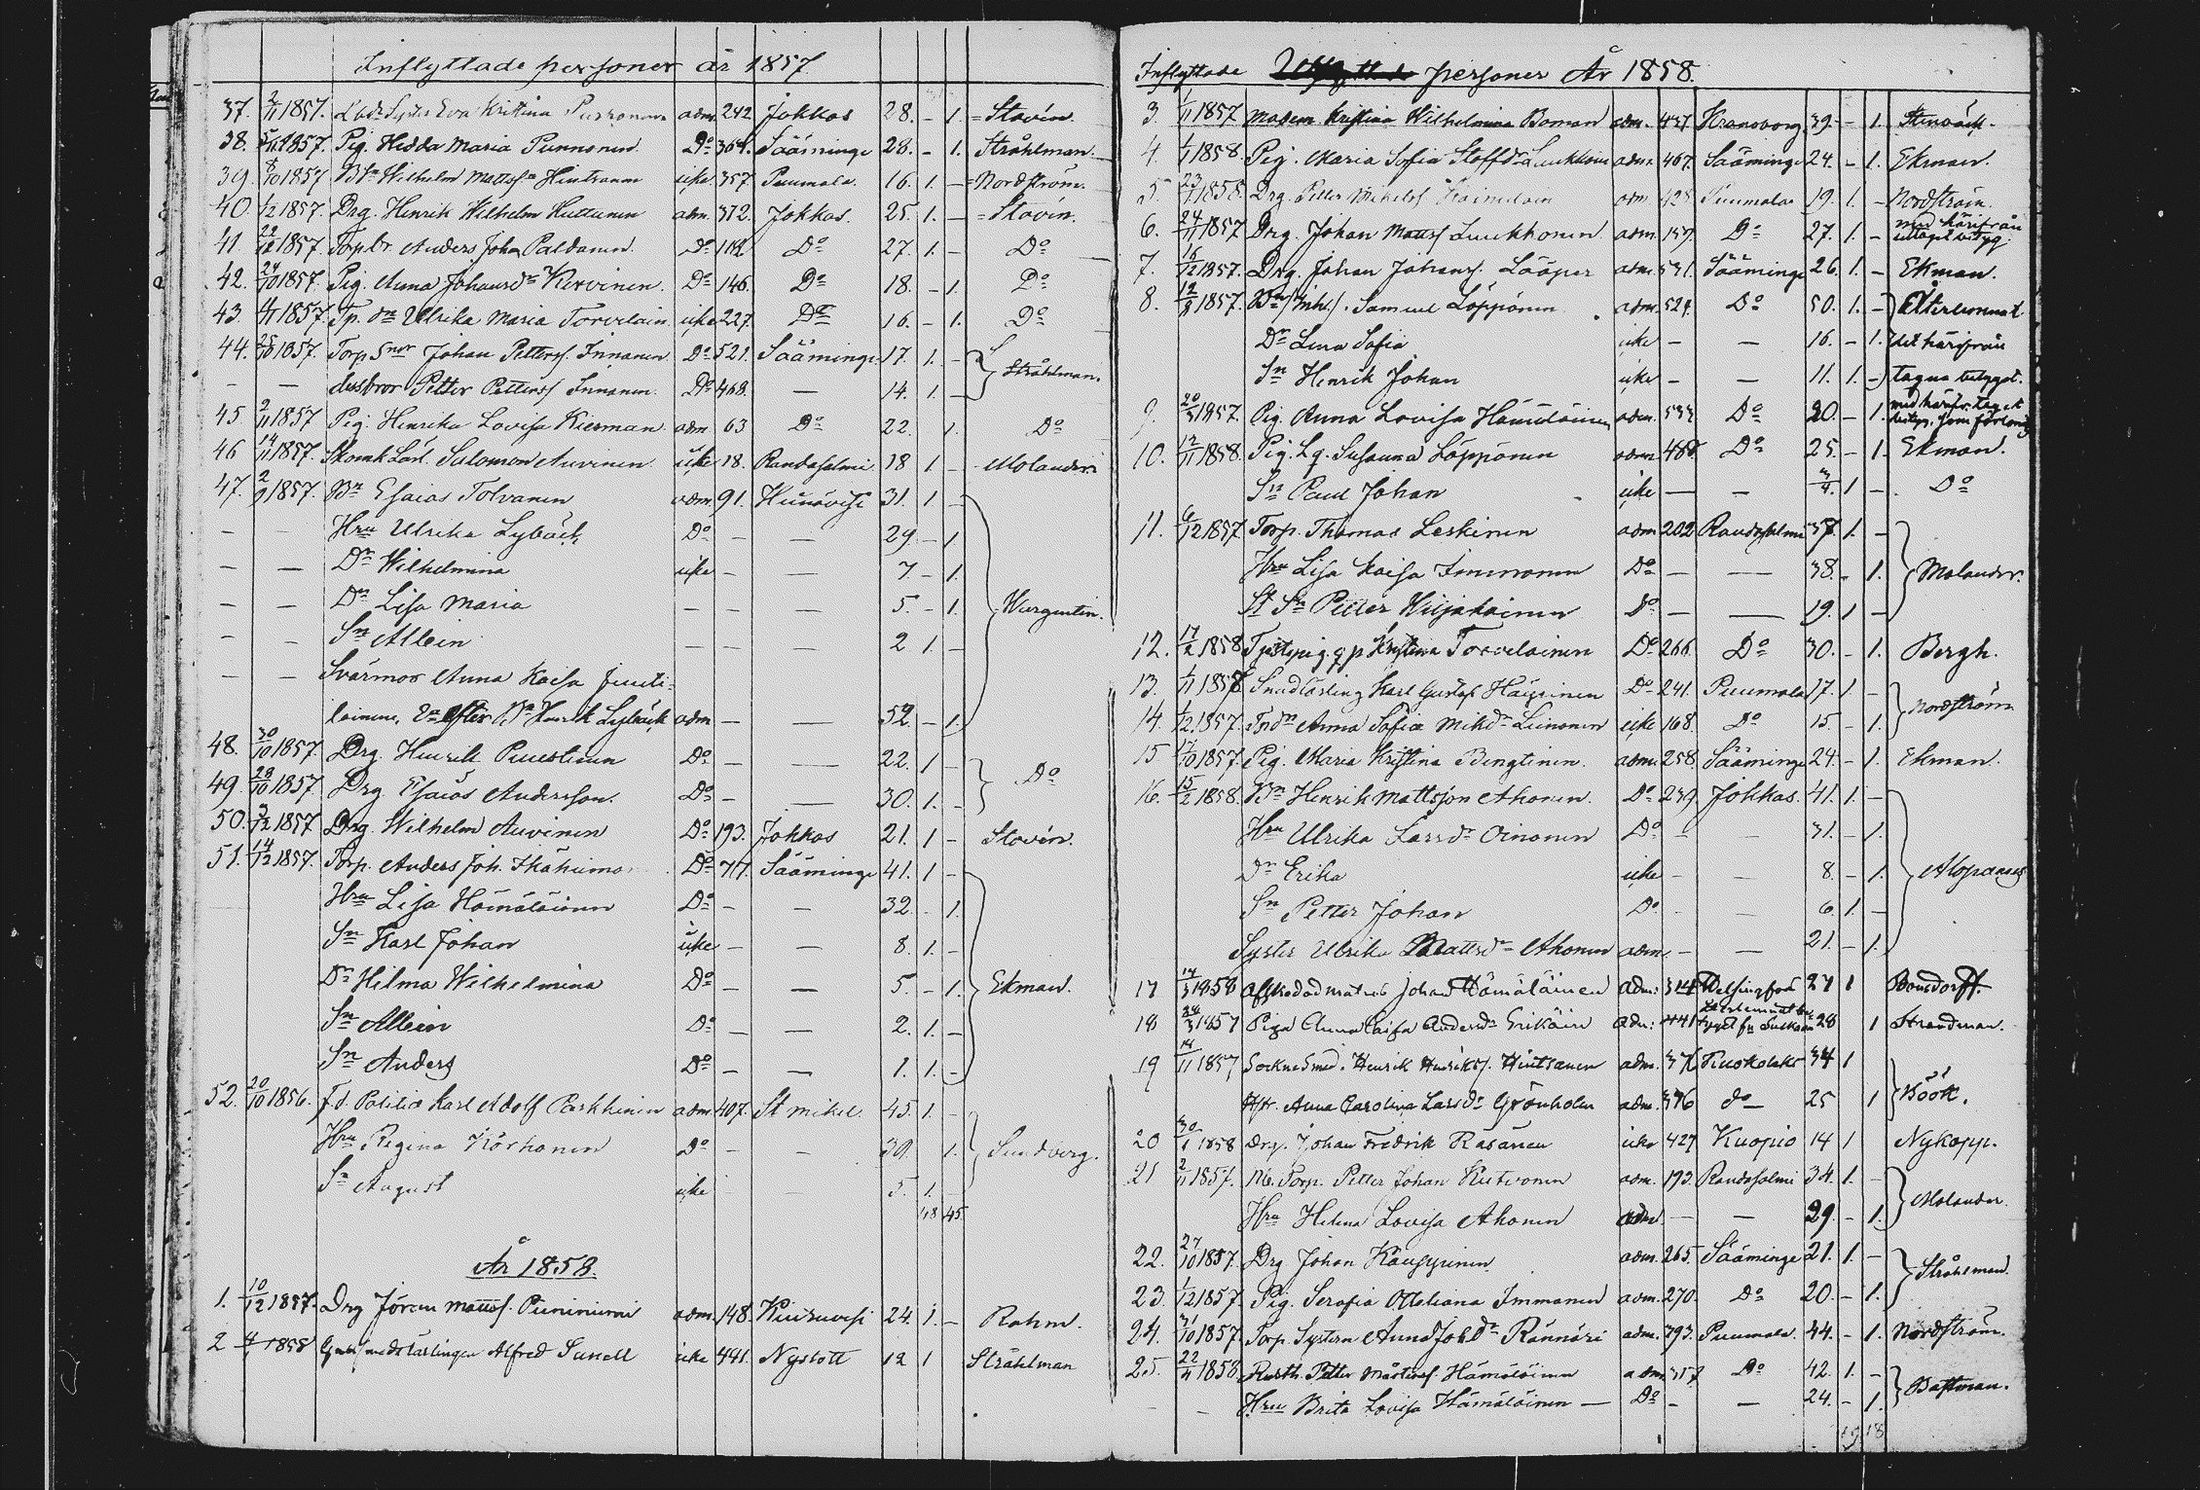 Inflyttade personer år 1857
37. 2/11 1857. Eva Kristina adm. 242 Jokkas 28. - 1. = Stavén.
38. 5/11 1857. Pig. Hedda Maria Punnonen Do 364. Sääminge 28. - 1. Stråhlman.
39. 8/10 1857 Wilhelm Mattss. Hintsanen icke. 357. Puumala. 16. 1. - = Nordström.
40. 1/12 1857. Drg. Henrik Wilhelm Huttunen adm. 372. Jokkas. 25. 1. - = Stavén.
41. 29/12 1857. Torp.br. Anders Joh. Paldanen. Do 112 Do 27. 1. - Do
42. 24/10 1857. Pig. Anna Johansdr Kervinen. Do 146. Do 18. - 1. Do
43. 4/11 1857. Tp. dn Ulrika Maria Torvelain. icke 227. Do 16. - 1. Do
44. 25/10 1857. Torp Snor Johan Petterss. Innanen Do 521. Sääminge 17. 1. - } Stråhlman.
- - dessbror Petter Petterss Innanen. Do 468. - 14. 1. -
45. 2/11 1857 Pig. Henrika Lovisa Kiesman adm. 63 Do 22. 1. Do
46 14/11 1857. Skom.Lärl. Salomon Auvinen icke 18. Randasalmi 18 1 - Molander.
47. 2/9 1857. Bn Esaias Tolvanen adm. 91. 31. 1 -
- - Hru Ulrika Lybäck Do - - 29 - 1.
- - Dn Wilhelmina icke - - 7 - 1.
- - Dn Lisa Maria - - - 5. - 1. } Wargentin.
- - Sn Allein - - - 2 1. -
- - Svärmor Anna Kaisa
lainen, En efter Bn Henrik Lybäck adm - - 52. - 1.
48. 30/10 1857. Drg. Henrik Do - - 22. 1 - } Do
49. 28/10 1857. Drg. Esaias Andersson. Do - - 30. 1. -
50. 3/12 1857 Drg. Wilhelm Auvinen Do 193. Jokkas 21. 1 - Stavén.
51. 14/12 1857. Torp. Anders Joh. Do 717. Sääminge 41. 1 -
Hru Lisa Hämäläinen Do - - 32. - 1.
Sn Karl Johan icke - - 8. 1. -
Dr Hilma Wilhelmina Do - - 5. - 1. } Ekman.
Sn Allein Do - - 2. 1. -
Sn Anders Do - - 1. 1. -
52. 20/10 1856. Fd. Politie Karl Adolf Parkkinen adm. 407. St Mikel 45. 1. -
Hru Regina Korhonen Do - - 39. 1. } Sundberg.
Sn August icke - - 5. 1. -
48 45
År 1858.
1. 10/12 1857. Drg Jöran Mattss. adm. 148. Kiuruvesi 24. 1. - Rahm.
2 4/1 1858 lärlingen Alfred Sunell icke 441. Nyslott 12 1 Stråhlman
Inflyttade personer År 1858.
3. 1/11 1857 Madem Kristina Wilhelmina Boman adm. 437. Kranoborg. 39. - 1. Stenbäck.
4. 1/1 1858. Pig. Maria Sofia Stoffdr Luukkoin adm. 467. Sääminge 24. - 1. Ekman.
5 23/1 1858. Drg. Petter Mikelss adm 428. Puumala 19. 1. - Nordström.
6. 24/11 1857 Drg. Johan Mattss Luukkonen adm. 157. Do 27. 1. - med härifrån uttaget betyg.
7. 16/12 1857. Drg. Johan Johanss. Lääper adm. 531. Sääminge 26. 1. - Ekman.
8. 12/8 1857. Bn Samuel Löppönen adm. 524. Do 50. 1. - } Återlemnat
Dr Lena Sofia icke - - 16. - 1. det härifrån
Sn Henrik Johan icke - - 11. 1. - tagna betyget.
9. 20/3 1857. Pig. Anna Lovisa Hämäläinen adm. 533 Do 20. - 1. med härifr. taget betyg.
10. 12/11 1858. Pig. Lq. Susanna Löppönen adm. 486. Do 25. - 1. Ekman.
Sn Paul Johan icke - - 3/4. 1 - Do
11. 6/12 1857 Torp. Thomas Leskinen adm. 202 Randasalmi 37. 1. -
Hru Lisa Kaisa Immonen Do - - 38. - 1. } Molander.
St Sn Petter Wiljakainen Do - - 19. 1 -
12. 17/2 1858 Kristina Torvelainen Do 266. Do 30. - 1. Bergh.
13. 1/11 1858 Smedlärling Karl Gustaf Häyrinen Do 241. Puumala 17. 1. - } Nordström
14. 1/12 1857. Anna Sofia Mikdr Luinonen icke 168. Do 15. - 1.
15 17/10 1857. Pig. Maria Kristina Bengtinen. adm. 258. Sääminge 24. - 1. Ekman.
16. 15/2 1858. Bn Henrik Mattsson Ahonen. Do 239. Jokkas. 41. 1. -
Hru Ulrika Larsdr Oinonen Do - - 31. - 1.
Dn Erika icke - - 8. - 1. } Alopaeus
Sn Petter Johan Do - - 6. 1. -
Syster Ulrika Mattsdr Ahonen adm. - - 21. - 1.
17 14/3 1858 Afskedad matros Johan Hämäläinen adm: 314 Helsingfors 27 1 Bonsdorff.
18 24/3 1857 Piga Anna Caisa Andersdr Erikäin adm: 441 28 1 Strandman.
19 14/11 1857 Sockne Smed. Henrik Henrikss. Hintsanen adm. 376 34 1
Hstr. Anna Carolina Larsdr Grönholm adm. 376 do 25 1 } Böök.
20 30/1 1858 Drg. Johan Fredrik Räsänen icke 427 Kuopio 14 1 Nykopp.
21 2/11 1857. Torp. Petter Johan Kietvonen adm. 193. Randasalmi 34. 1. - } Molander.
Hru Helena Lovisa Ahonen adm - - 29. - 1.
22. 27/10 1857. Drg Johan Kauppinen adm. 265. Sääminge 21. 1. - } Stråhlman.
23. 1/12 1857. Pig. Serafia Otteliana Immonen adm. 270. Do 20. - 1.
24. 31/10 1857. Torp Systern Anna Johdr Rännäri adm. 393. Puumala. 44. - 1. Nordström.
25. 22/4 1858. Petter Mårtenss. Hämäläinen adm. 357 Do 42. 1. - } Bastman.
- - Hru Brita Lovisa Hämäläinen - Do - - 24. - 1.
19 18